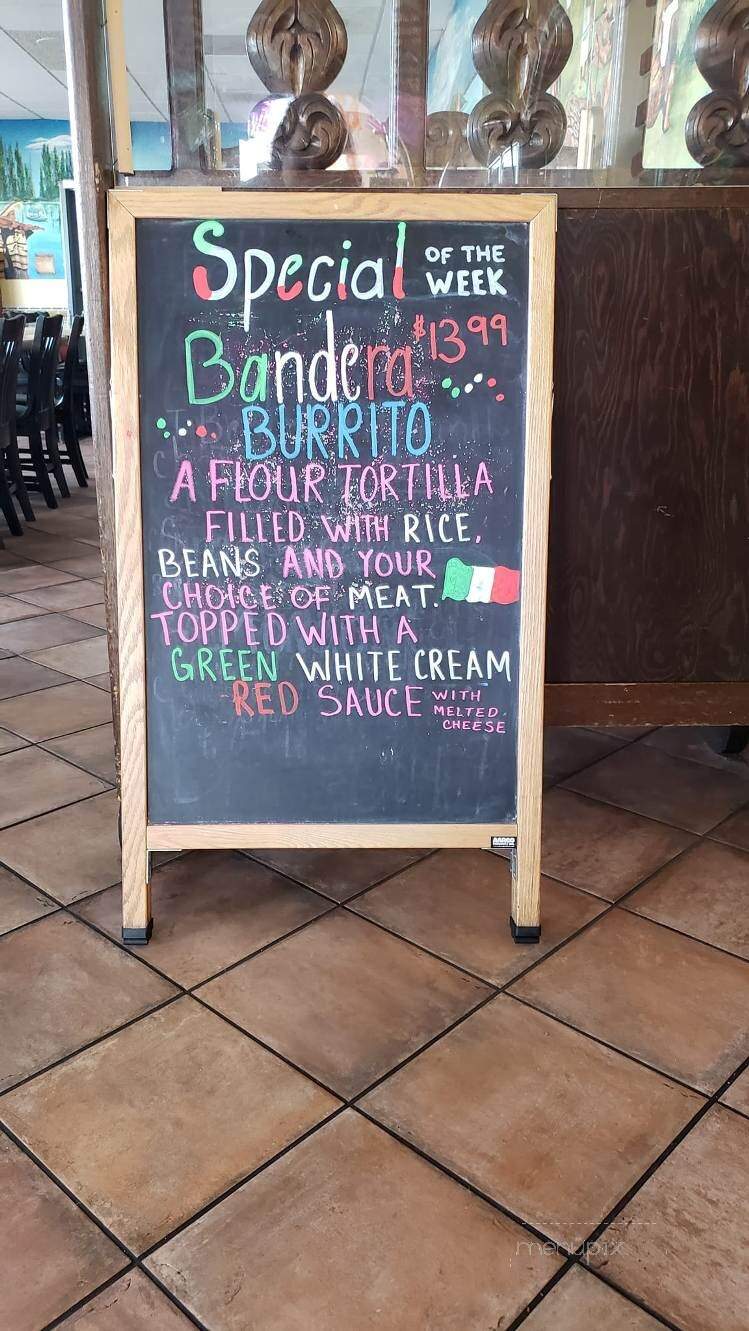 Special OF THE WEEK
Bandera $13.99
BURRITO
A FLOUR TORTILLA
FILLED WITH RICE,
BEANS AND YOUR
CHOICE OF MEAT.
TOPPED WITH A
GREEN WHITE CREAM
RED SAUCE WITH MELTED CHEESE
menupix